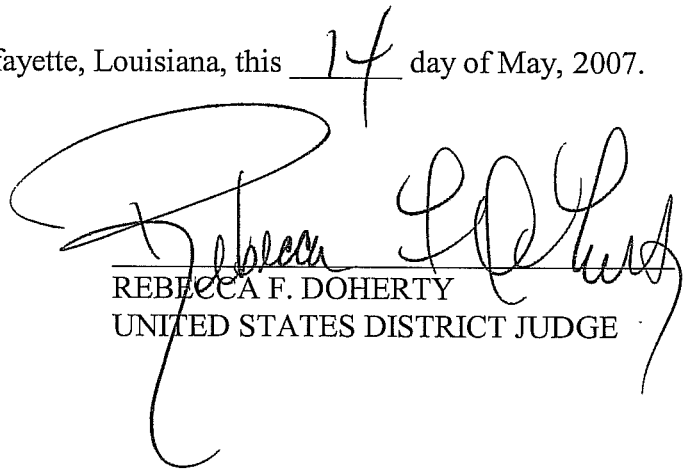 fayette, Louisiana, this 14 day of May, 2007.
Rebecca F Doherty
REBECCA F. DOHERTY
UNITED STATES DISTRICT JUDGE